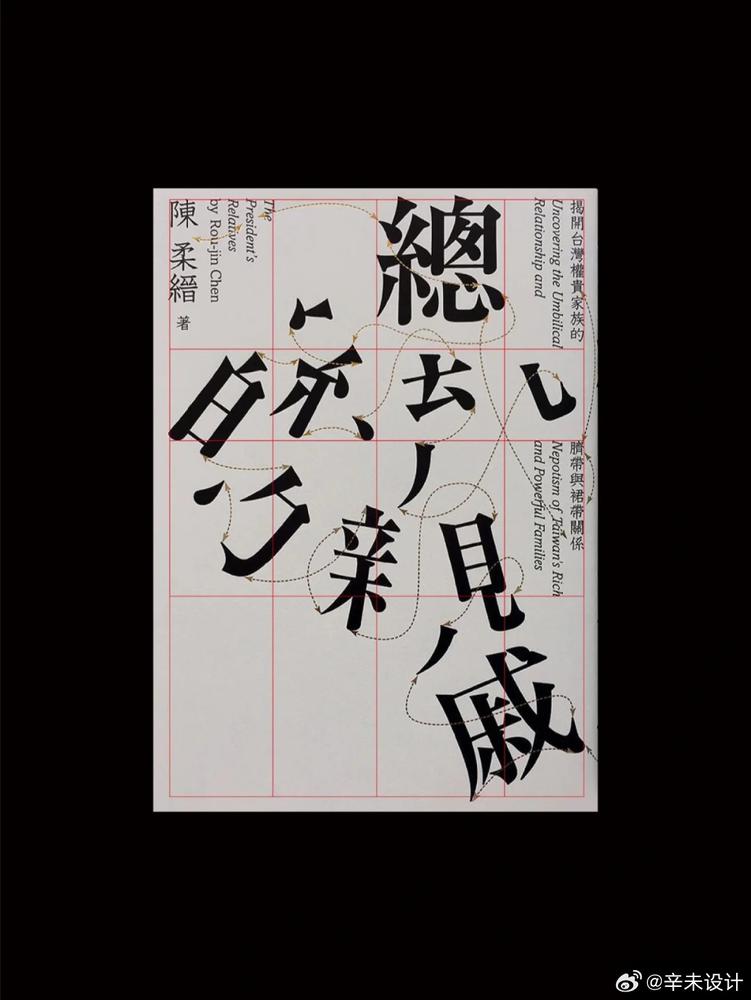 揭開台灣權貴家族的
Uncovering the Umbilical
Relationship and
臍帶與裙帶關係
Nepotism of Taiwan's Rich
and Powerful Families
總統的親戚
The
President's
Relatives
by Rou-jin Chen
陳柔縉 著
@辛未设计